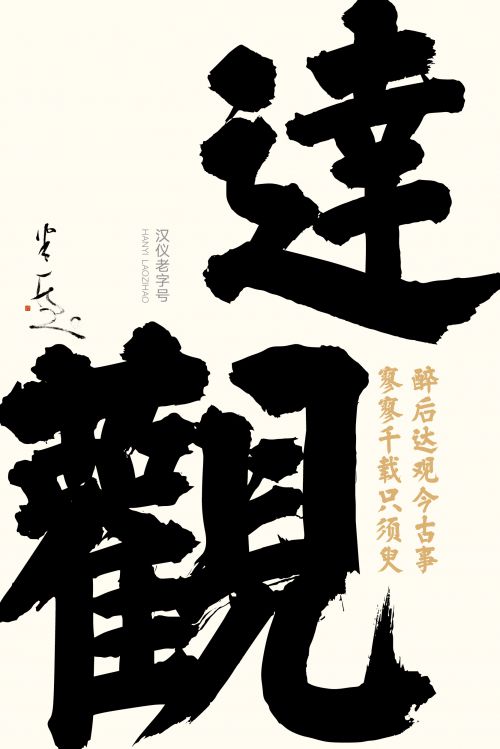 達
觀
汉仪老字号
HANYI LAOZIHAO
醉后达观今古事
寥寥千载只须臾